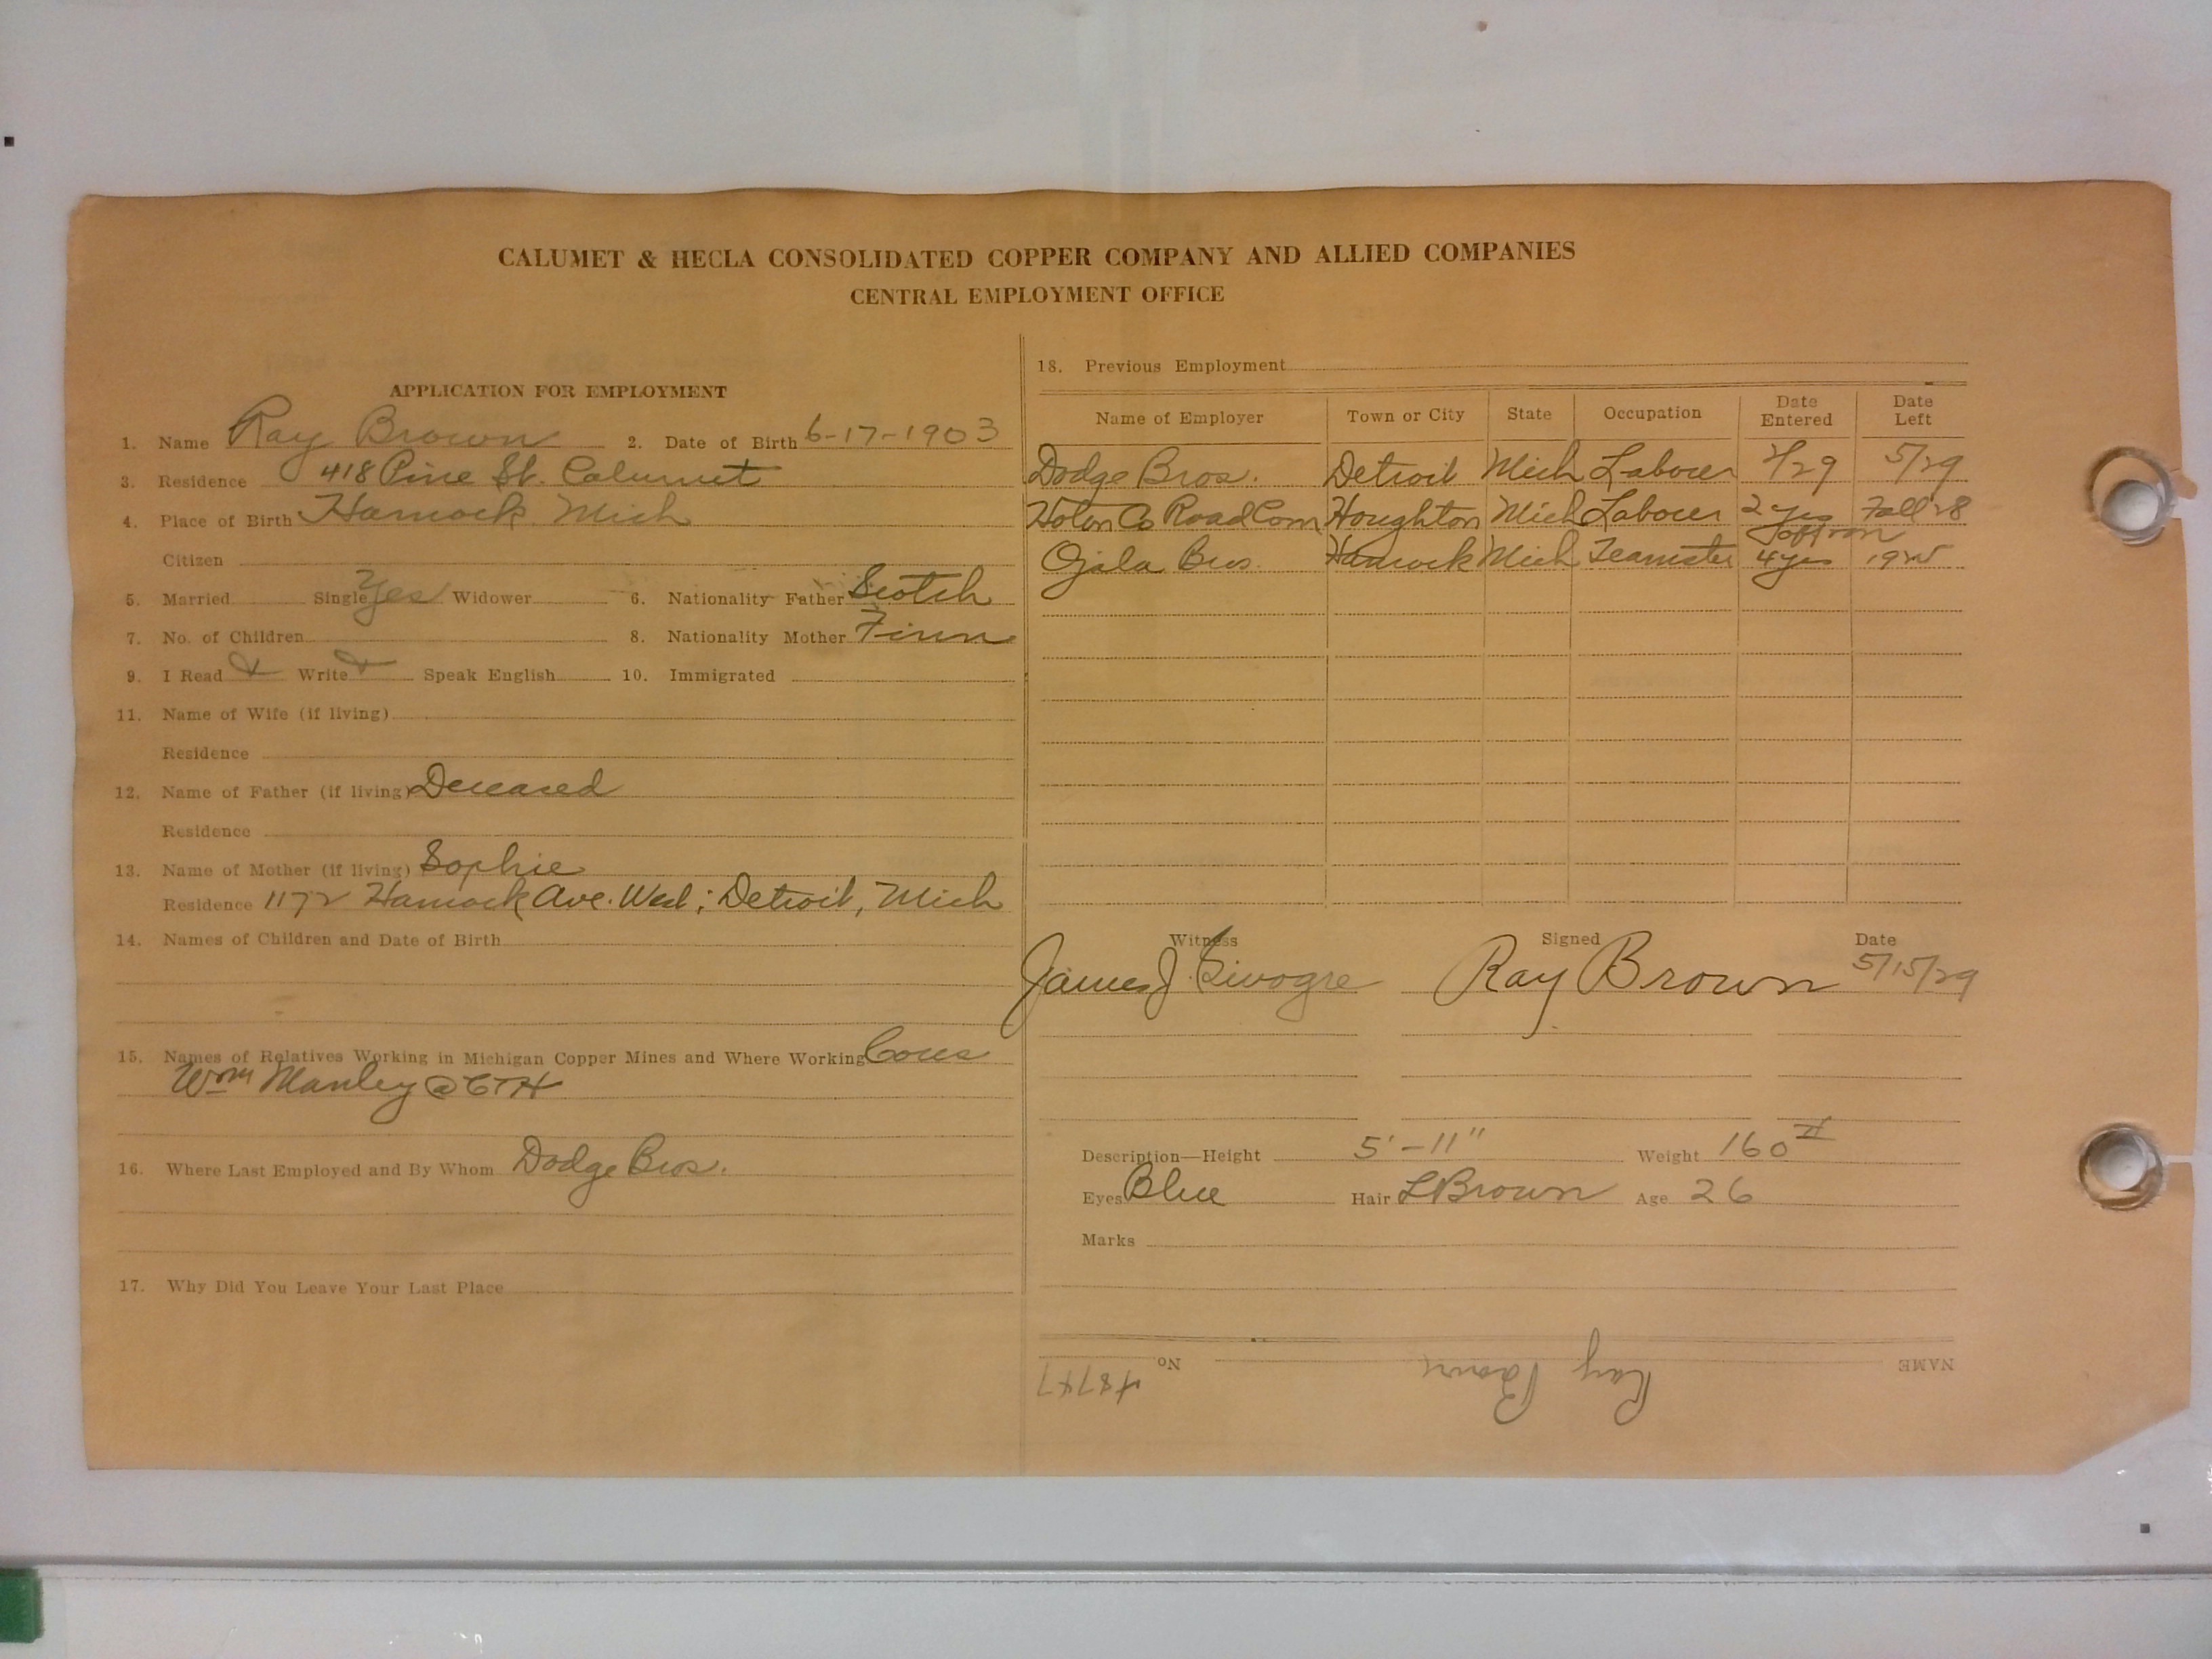 CALUMET & HECLA CONSOLIDATED COPPER COMPANY AND ALLIED COMPANIES
CENTRAL EMPLOYMENT OFFICE
APPLICATION FOR EMPLOYMENT
1. Name Ray Brown 2. Date of Birth 6-17-1903
3. Residence 418 Pine St. Calumet
4. Place of Birth Hancock Mich
Citizen
5. Married Single Yes Widower 6. Nationality Father Scotch
7. No. of Children 8. Nationality Mother Finn
9. I Read & Write & Speak English 10. Immigrated
11. Name of Wife (if living)
Residence
12. Name of Father (if living) Deceased
Residence
13. Name of Mother (if living) Sophie
Residence 1172 Hancock Ave. West; Detroit, Mich
14. Names of Children and Date of Birth
15. Names of Relatives Working in Michigan Copper Mines and Where Working Cous
Wm Manley @ C&H
16. Where Last Employed and By Whom Dodge Bros.
17. Why Did You Leave Your Last Place
18. Previous Employment
Name of Employer Town or City State Occupation Date Entered Date Left
Dodge Bros. Detroit Mich Laborer 2/29 5/29
Hoton Co Road Com Houghton Mich Laborer 2 yrs Fall 28
off & on
Ojala Bros. Hancock Mich Teamster 4 yrs 1925
Witness Signed Date
James J. Ray Brown 5/15/29
Description—Height 5'-11" Weight 160 #
Eyes Blue Hair L Brown Age 26
Marks
NAME Ray Brown No. 48747